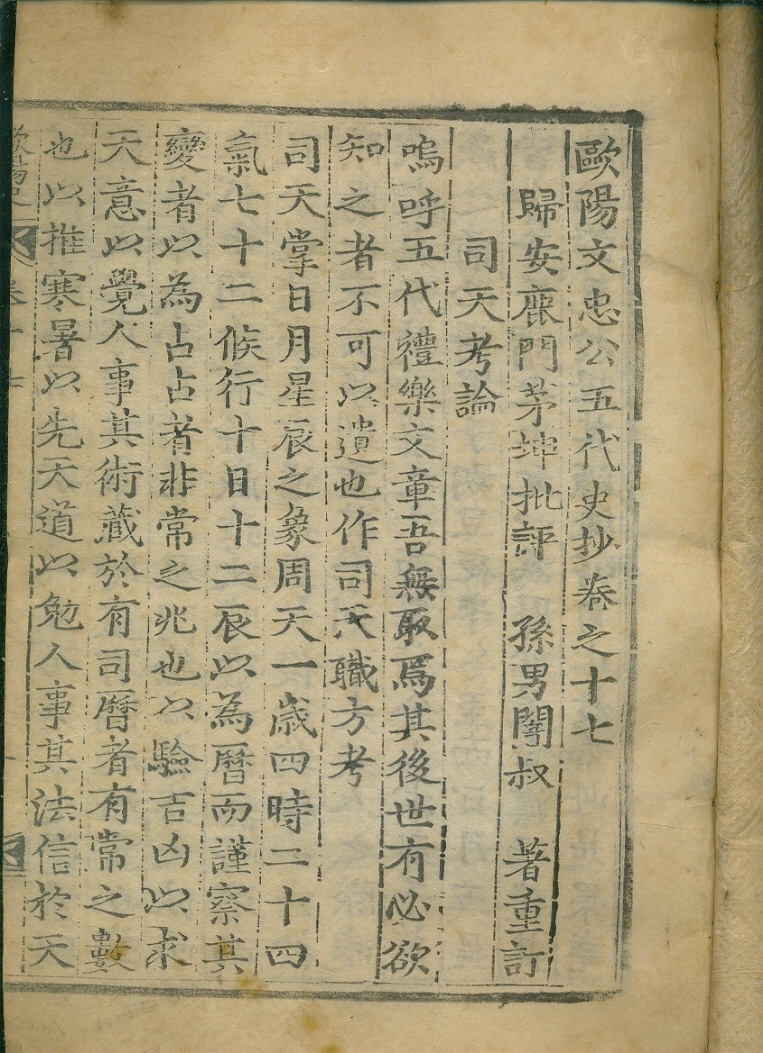 歐陽文忠公五代史抄卷之十七
歸安鹿門茅坤批評　孫男闇叔　著重訂
司天考論
嗚呼五代禮樂文章吾無取焉其後世有必欲
知之者不可以遺也作司天職方考
司天掌日月星辰之象周天一歲四時二十四
氣七十二候行十日十二辰以為曆而謹察其
變者以為占占者非常之兆也以驗吉凶以求
天意以覺人事其術藏於有司曆者有常之數
也以推寒暑以先天道以勉人事其法信於天
歐陽史
卷十七